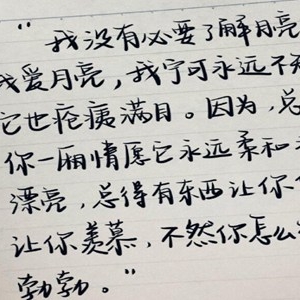 “我没有必要了解月亮
我爱月亮，我宁可永远不
它也疮痍满目。因为，总
你一厢情愿它永远柔和
漂亮，总得有东西让你
让你羡慕，不然你怎么
勃勃。”